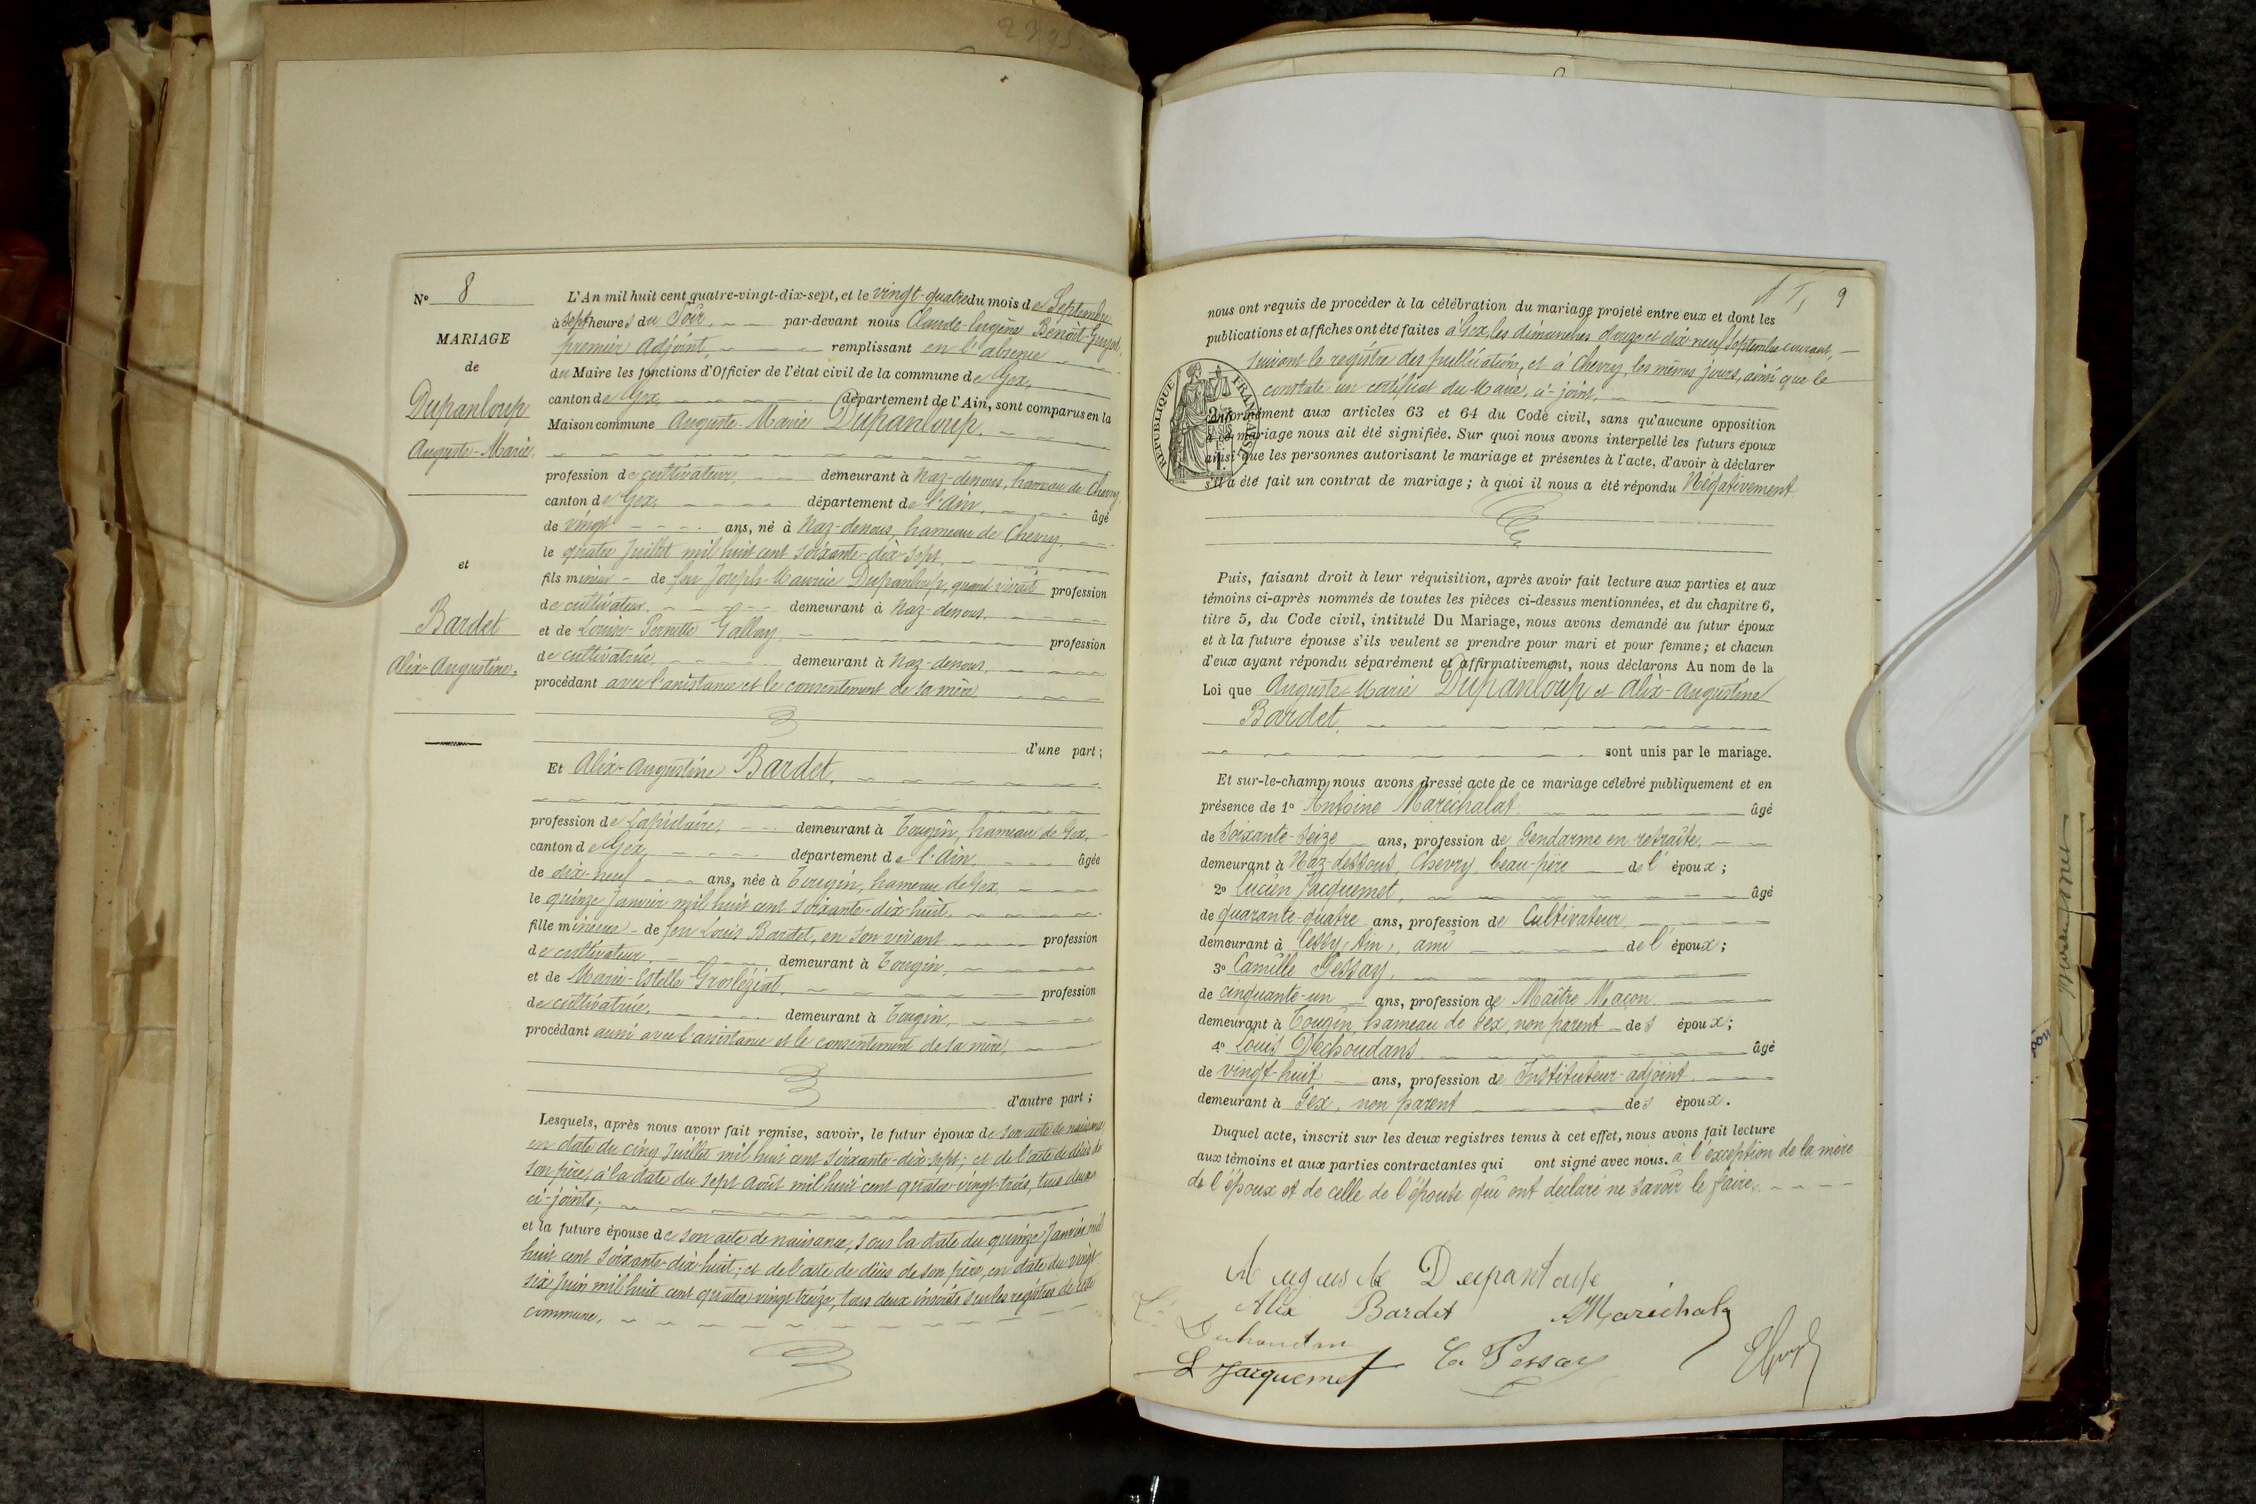 N° 8
MARIAGE
de
Dupanloup
Auguste-Marie.
et
Bardet
Alix-Augustine.
L'An mil huit cent quatre-vingt-dix-sept, et le vingt-quatre du mois de Septembre
à sept heures du Soir, par-devant nous Claude-Eugène Benoît-Guyot,
premier Adjoint, remplissant en l'absence
du Maire les fonctions d'Officier de l'état civil de la commune de Gex,
canton de Gex, département de l'Ain, sont comparus en la
Maison commune Auguste-Marie Dupanloup.
profession de cultivateur, demeurant à Naz-dessous, hameau de Chevry,
canton de Gex, département de l'Ain, âgé
de vingt ans, né à Naz-dessous, hameau de Chevry,
le quatre Juillet mil huit cent soixante-dix-sept,
fils mineur de feu Joseph-Maurice Dupanloup, quand vivait profession
de cultivateur, demeurant à Naz-dessous,
et de Louise-Pernette Gallay, profession
de cultivatrice, demeurant à Naz-dessous,
procédant avec l'assistance et le consentement de sa mère
d'une part;
Et Alix-Augustine Bardet,
profession de Lapidaire, demeurant à Tougin, hameau de Gex,
canton de Gex, département de l'Ain, âgée
de dix-neuf ans, née à Tougin, hameau de Gex,
le quinze Janvier mil huit cent soixante-dix-huit,
fille mineure de feu Louis Bardet, en son vivant profession
de cultivateur, demeurant à Tougin,
et de Marie-Estelle Groslégiat, profession
de cultivatrice, demeurant à Tougin,
procédant aussi avec l'assistance et le consentement de sa mère,
d'autre part;
Lesquels, après nous avoir fait remise, savoir, le futur époux de son acte de naissance
en date du cinq Juillet mil huit cent soixante-dix-sept; et de l'acte de décès de
son père, à la date du sept Août mil huit cent quatre-vingt-trois, tous deux
ci-joints;
et la future épouse de son acte de naissance, sous la date du quinze Janvier mil
huit cent soixante-dix-huit; et de l'acte de décès de son père, en date du vingt-
six Juin mil huit cent quatre-vingt-treize, tous deux inscrits sur les registres de cette
commune.
9
nous ont requis de procéder à la célébration du mariage projeté entre eux et dont les
publications et affiches ont été faites à Gex, les dimanches douze et dix-neuf Septembre courant,
suivant le registre des publications, et à Chevry, les mêmes jours, ainsi que le
constate un certificat du Maire, ci-joint,
REPUBLIQUE FRANÇAISE
conformément aux articles 63 et 64 du Code civil, sans qu'aucune opposition
à ce mariage nous ait été signifiée. Sur quoi nous avons interpellé les futurs époux
ainsi que les personnes autorisant le mariage et présentes à l'acte, d'avoir à déclarer
s'il a été fait un contrat de mariage; à quoi il nous a été répondu Négativement
Puis, faisant droit à leur réquisition, après avoir fait lecture aux parties et aux
témoins ci-après nommés de toutes les pièces ci-dessus mentionnées, et du chapitre 6,
titre 5, du Code civil, intitulé Du Mariage, nous avons demandé au futur époux
et à la future épouse s'ils veulent se prendre pour mari et pour femme; et chacun
d'eux ayant répondu séparément et affirmativement, nous déclarons Au nom de la
Loi que Auguste-Marie Dupanloup et Alix-Augustine
Bardet
sont unis par le mariage.
Et sur-le-champ, nous avons dressé acte de ce mariage célébré publiquement et en
présence de 1° Antoine Maréchalat âgé
de soixante-seize ans, profession de Gendarme en retraite,
demeurant à Naz-dessous, Chevry, beau-père de l'époux;
2° Lucien Jacquemet, âgé
de quarante-quatre ans, profession de Cultivateur
demeurant à Cessy, Ain, ami de l'époux;
3° Camille Pessay,
de cinquante-un ans, profession de Maître Maçon
demeurant à Tougin, hameau de Gex, non parent des époux;
4° Louis Dechoudans âgé
de vingt-huit ans, profession de Instituteur-adjoint
demeurant à Gex, non parent des époux.
Duquel acte, inscrit sur les deux registres tenus à cet effet, nous avons fait lecture
aux témoins et aux parties contractantes qui ont signé avec nous. à l'exception de la mère
de l'époux et de celle de l'épouse qui ont déclaré ne savoir le faire.
Auguste Dupanloup
Alix Bardet
L. Jacquemet